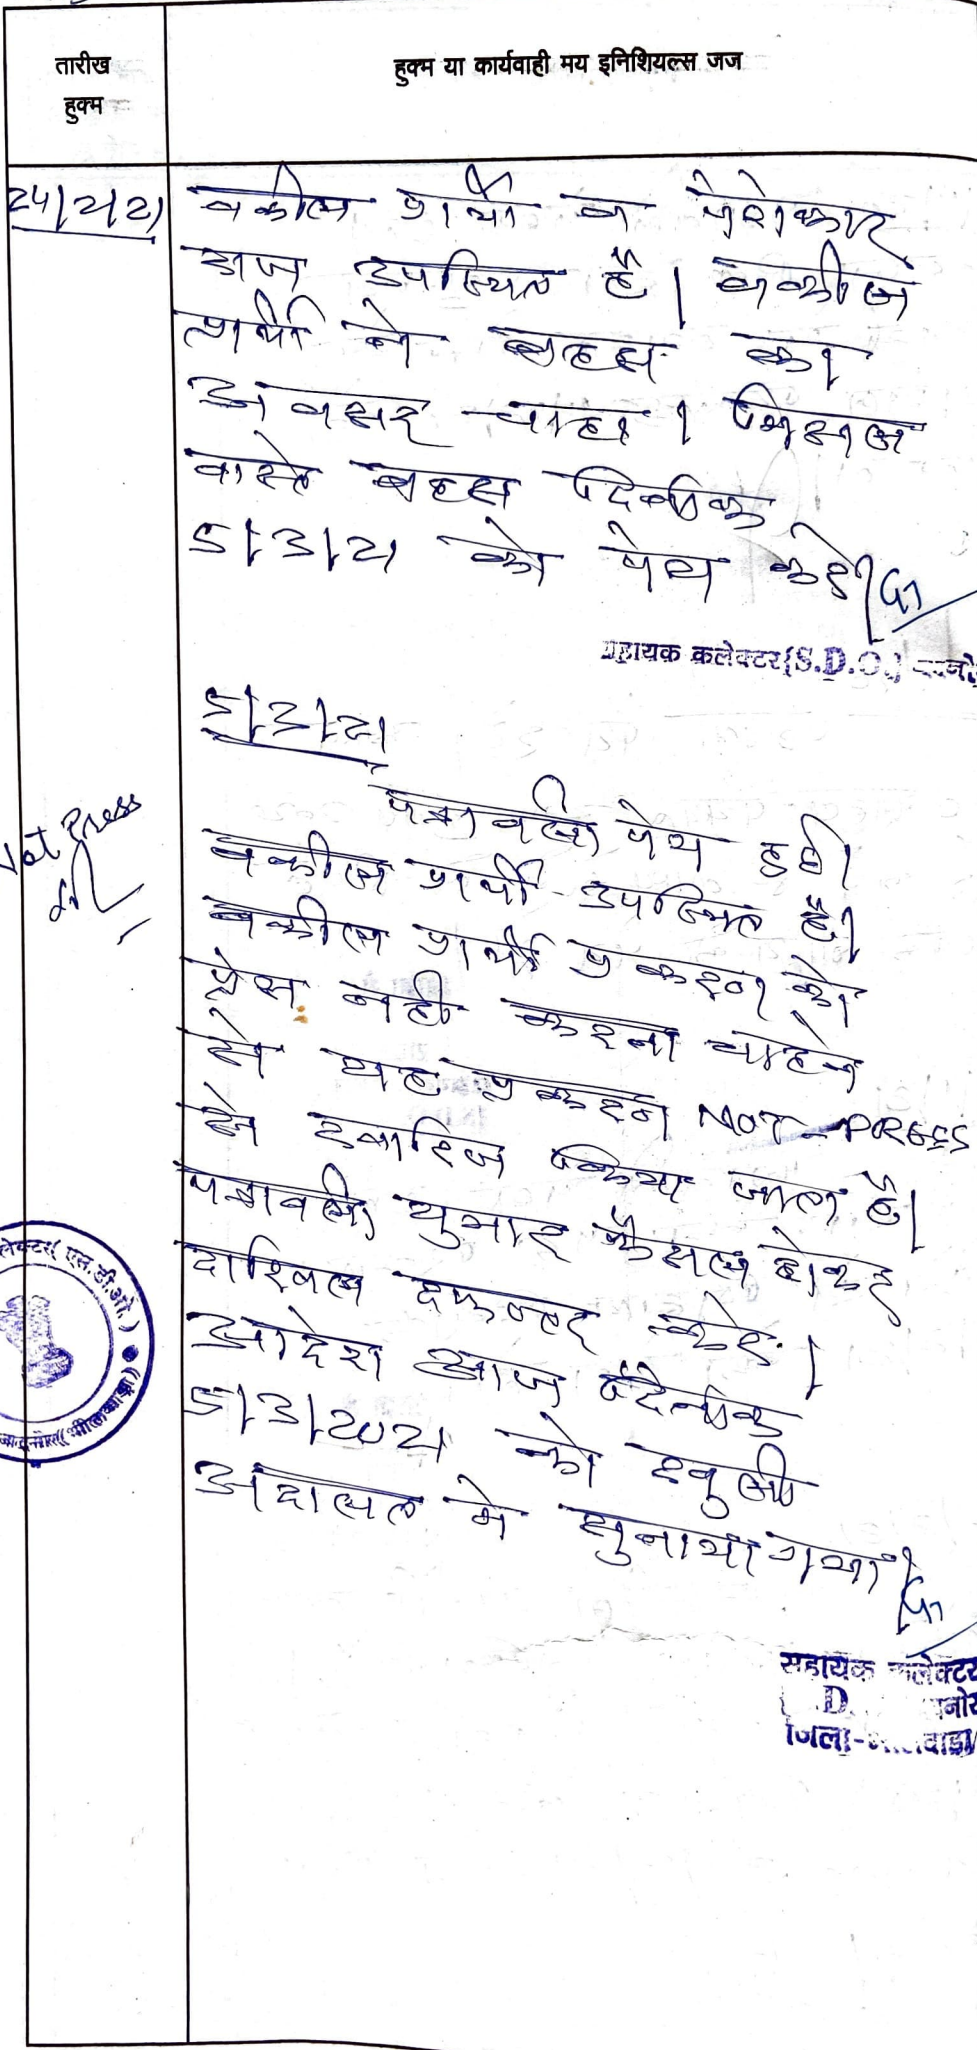 तारीख
हुक्म
हुक्म या कार्यवाही मय इनिशियल्स जज
24/2/21
वकील प्रार्थी व पेरोकार
आज उपस्थित है। वकील
प्रार्थी ने बहस का
अवसर चाहा। मिसल
वास्ते बहस दिनांक
5/3/21 को पेश करे।
सहायक कलेक्टर (S.D.O.)
5/3/21
पत्रावली पेश हुई।
Not Press
वकील प्रार्थी उपस्थित है।
वकील प्रार्थी प्रकरण को
प्रेस नही करना चाहते
से यह प्रकरण NOT-PRESS
मे खारिज किया जाता है।
पत्रावली शुमार फैसल होकर
दाखिल दफ्तर करे।
आदेश आज दिनांक
5/3/2021 को खुली
अदालत मे सुनाया गया।
लेक्टर (एस.डी.ओ.)
(भीलवाड़ा)
सहायक कलेक्टर
D. नोर
जिला-वाड़ा